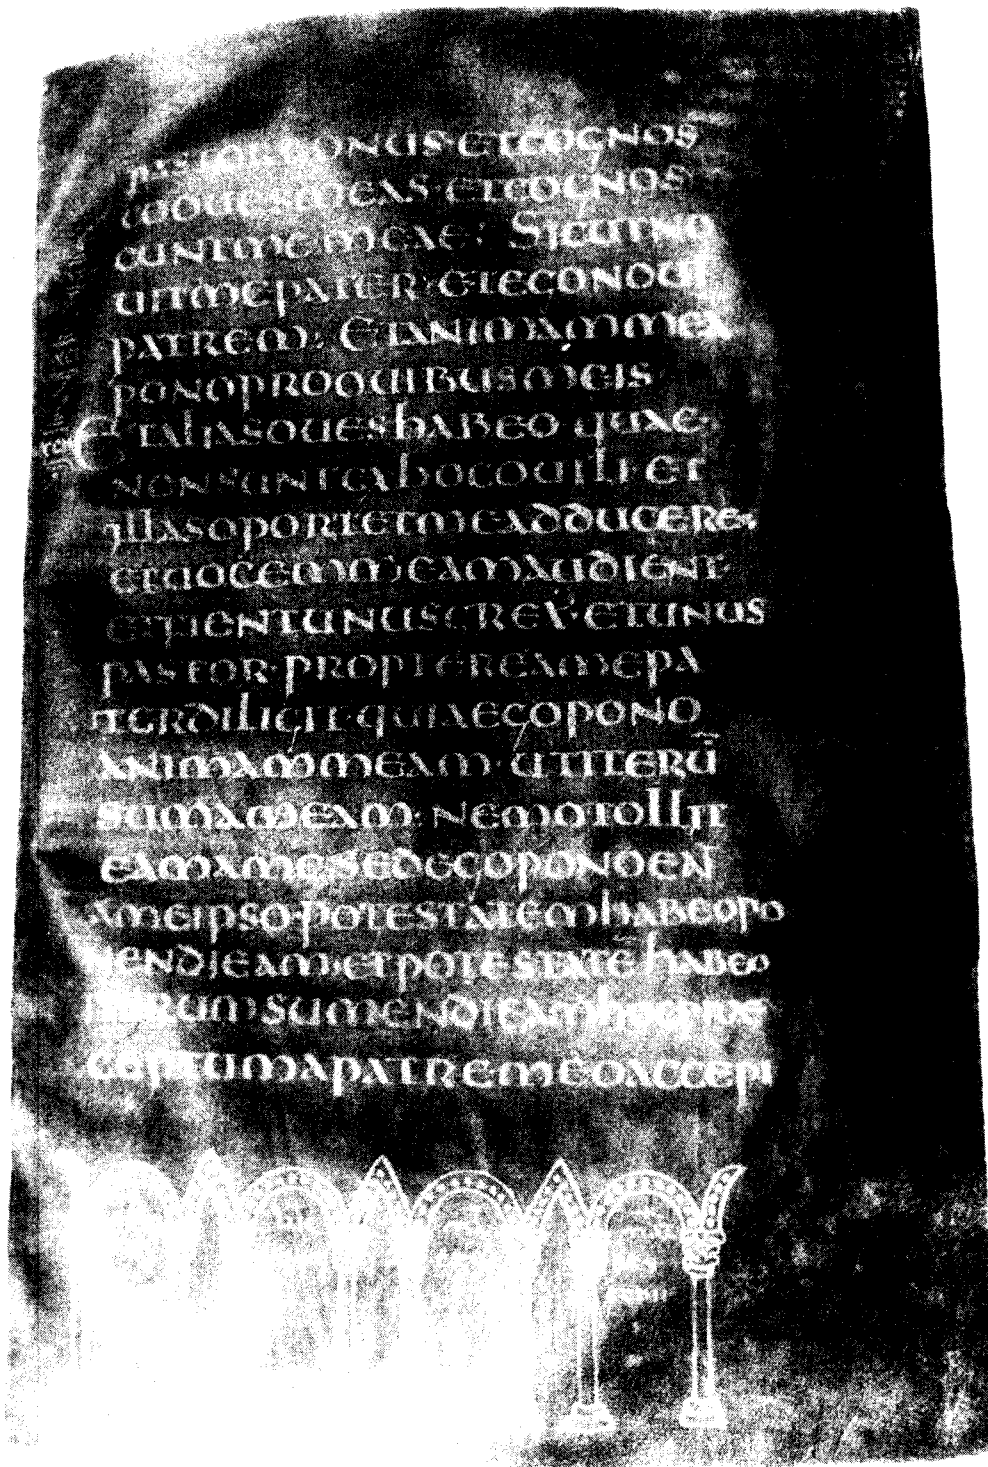 PASTORBONUS·ETCOGNOS
COOUESMEAS·ETCOGNOS
CUNTMEMEAE: SICUTNO
UITMEPATER·ETEGONOUI
PATREM: ETANIMAMMEA
PONOPROOUIBUSMEIS
ETALIASOUESHABEO·QUAE·
NONSUNTEXHOCOUILI·ET
ILLASOPORTETMEADDUCERE·
ETUOCEMMEAMAUDIENT·
ETFIENTUNUSGREX·ETUNUS
PASTOR·PROPTEREAMEPA
TERDILIGIT·QUIAEGOPONO
ANIMAMMEAM·UTITERŪ
SUMAMEAM·NEMOTOLLIT
EAMAME·SEDEGOPONOEĀ
AMEIPSO·POTESTATEMHABEOPO
NENDIEAM·ETPOTESTATĒHABEO
ITERUMSUMENDIEAMHOCPRAE
CEPTUMAPATREMEOACCEPI